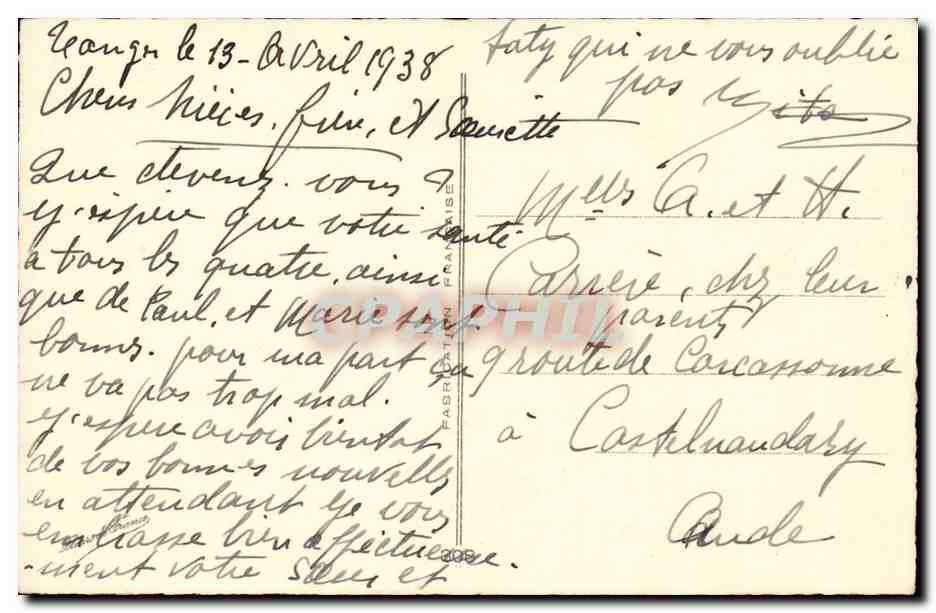 Tanger le 13 - Avril 1938
Chères Nièces, frère, et Sœurette
Que devenez-vous ?
J'espère que votre santé
a tous les quatre, ainsi
que de Paul, et Marie sont
bonnes. pour ma part ça
ne va pas trop mal.
J'espère avoir bientot
de vos bonnes nouvelles
en attendant je vous
embrasse bien affectueuse-
-ment votre sœur et
taty qui ne vous oublie
pas
Melles A. et H.
Carrère, chez leur
parents
9 route de Carcassonne
à Castelnaudary
Aude
FABRICATION FRANÇAISE
CPAPHIL